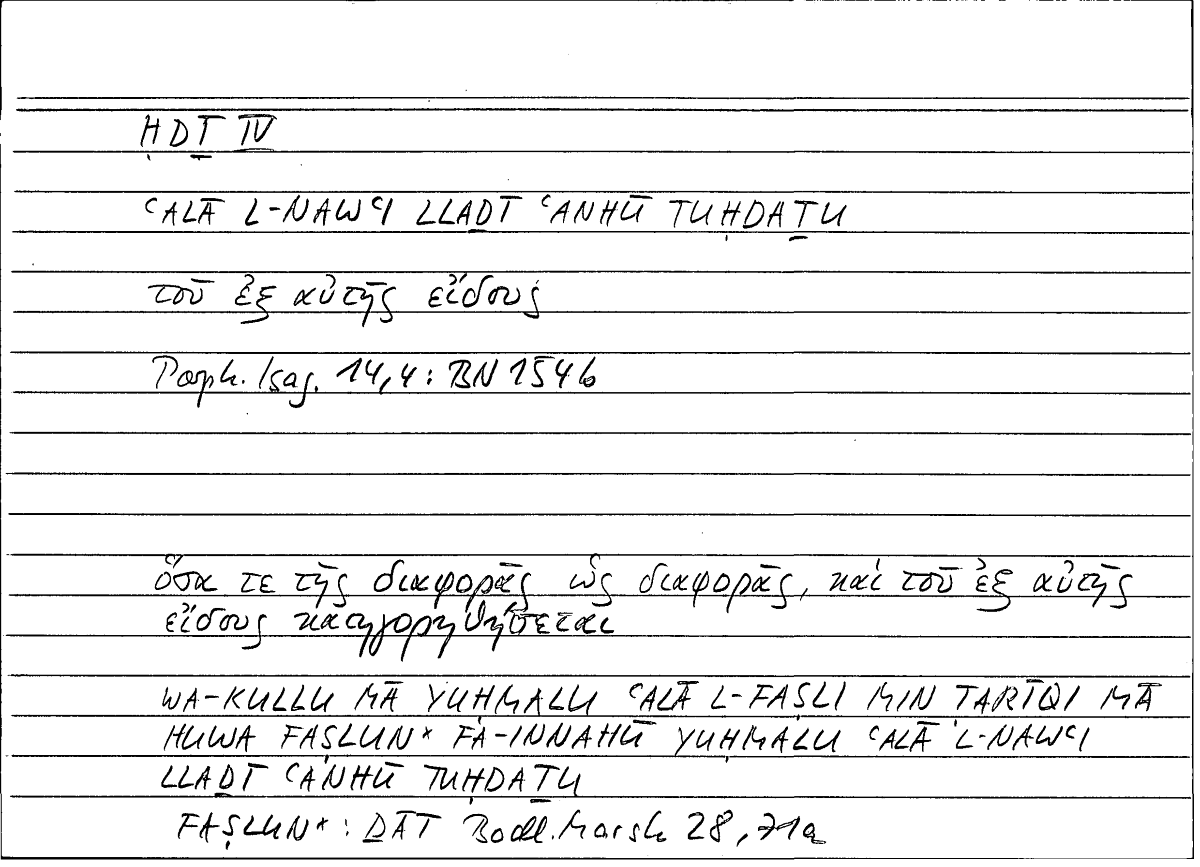 ḤDṮ IV
ʿALĀ L-NAWʿI LLAḎĪ ʿANHŪ TUḤDAṮU
τοῦ ἐξ αὐτῆς εἴδους
Porph. Isag. 14,4: BN 154b
ὅσα τε τῆς διαφορᾶς ὡς διαφορᾶς, καὶ τοῦ ἐξ αὐτῆς
εἴδους κατηγορηθήσεται
WA-KULLU MĀ YUḤMALU ʿALĀ L-FAṢLI MIN ṬARĪQI MĀ
HUWA FAṢLUN* FA-INNAHŪ YUḤMALU ʿALĀ L-NAWʿI
LLAḎĪ ʿANHŪ TUḤDAṮU
FAṢLUN*: ḎĀT Bodl. Marsh 28, 71a